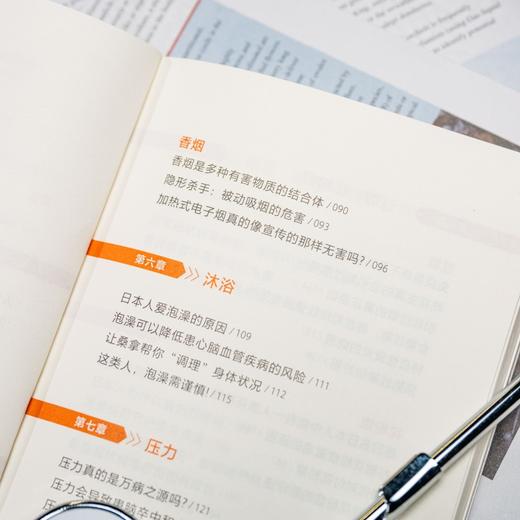 香烟
香烟是多种有害物质的结合体/090
隐形杀手：被动吸烟的危害/093
加热式电子烟真的像宣传的那样无害吗?/096
第六章 》 沐浴
日本人爱泡澡的原因/109
泡澡可以降低患心脑血管疾病的风险/111
让桑拿帮你“调理”身体状况/112
这类人，泡澡需谨慎!/115
第七章 》 压力
压力真的是万病之源吗?/121
压力会导致患脑卒中和